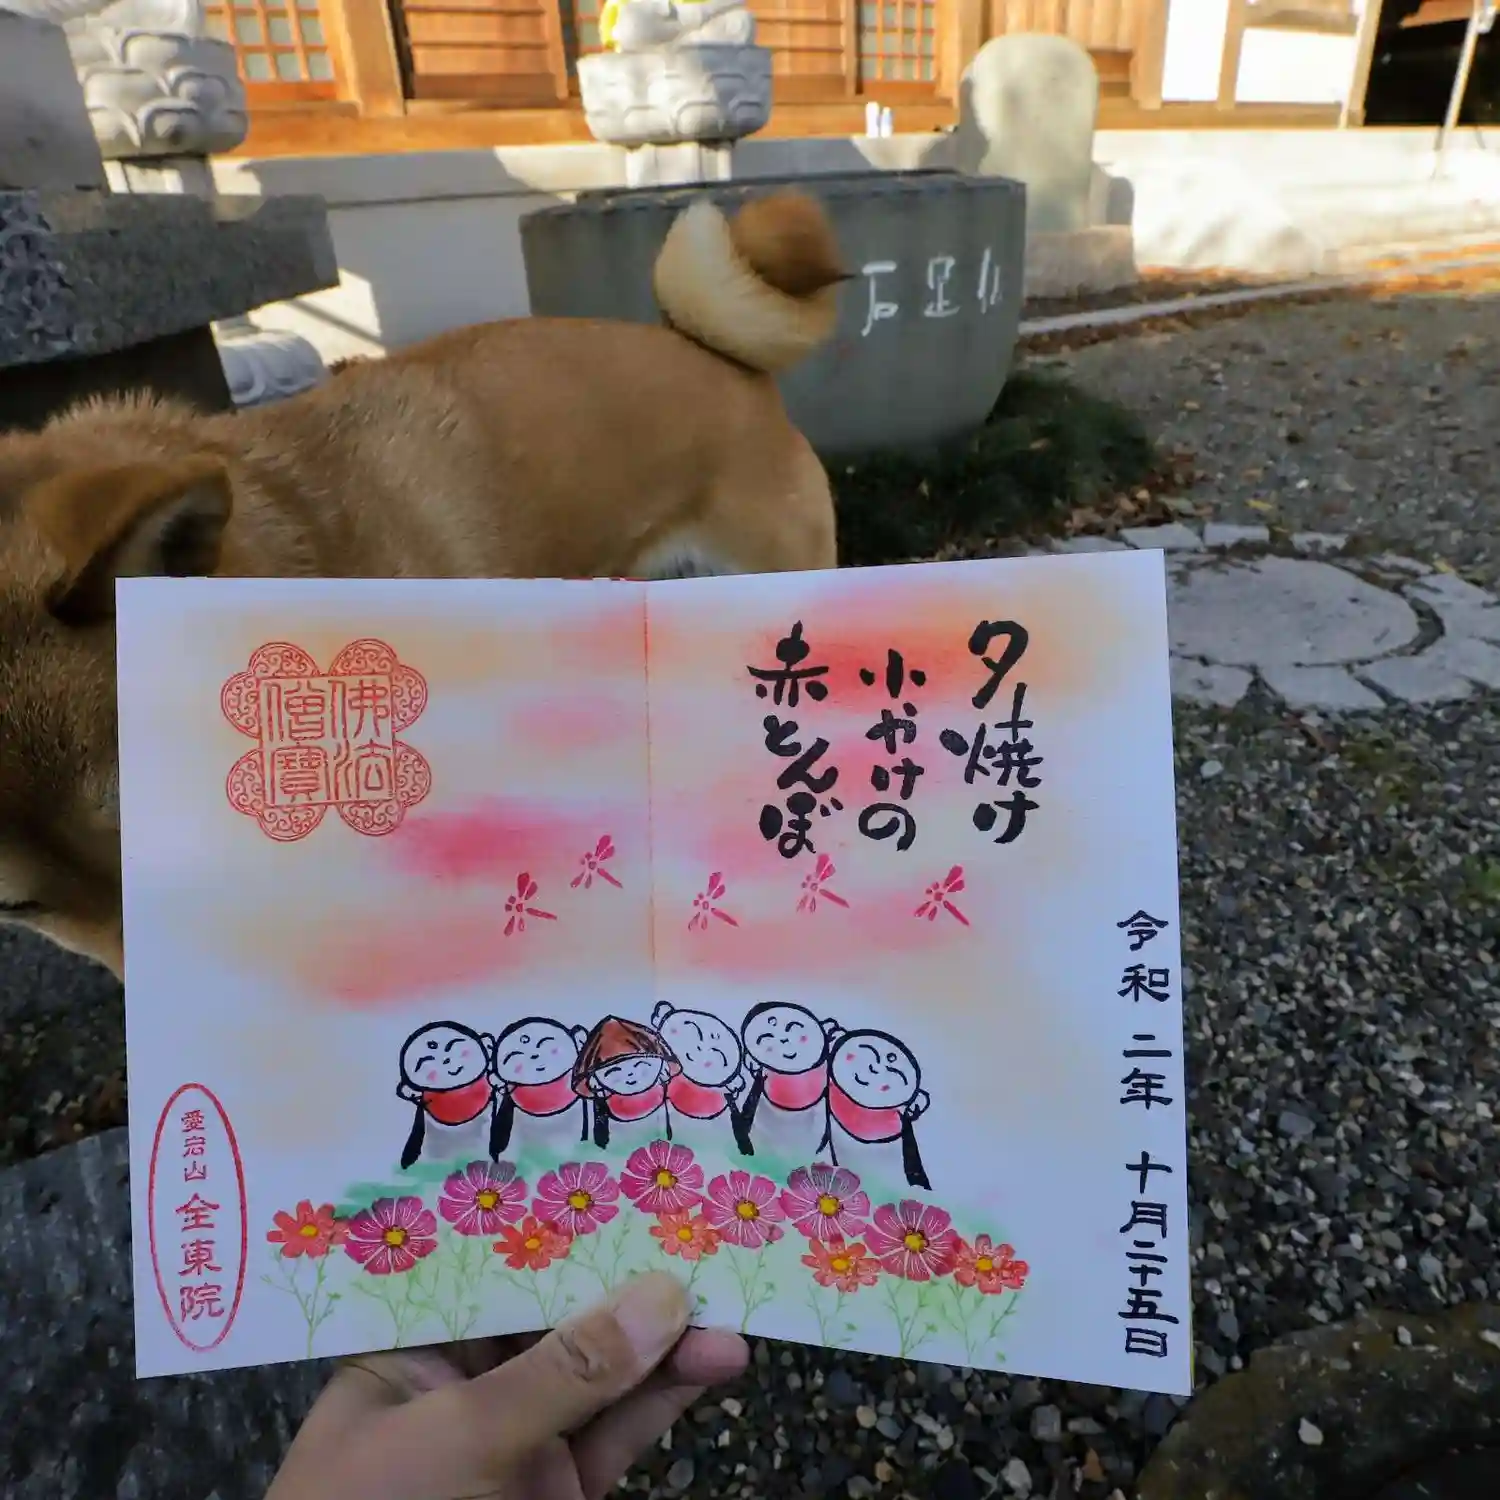 夕焼け
小やけの
赤とんぼ
令和二年 十月二十五日
佛法
僧寶
愛宕山 全東院